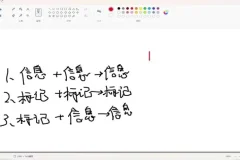 1、信息 + 信息→信息
2、标记 + 标记→标记
3、标记 + 信息→信息